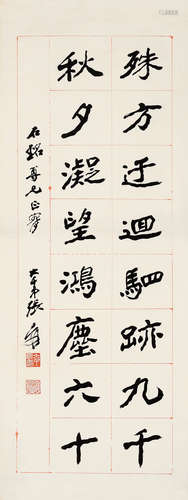 殊方迂迴駟跡九千
秋夕凝望鴻塵六十
石銘尊兄正
大千弟張爰